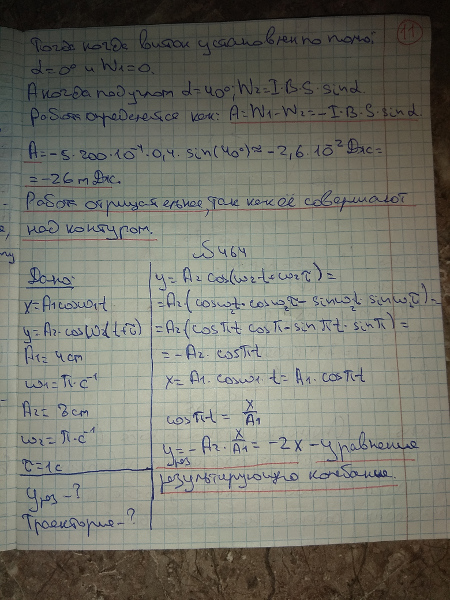 11
Тогда когда виток установлен по полю:
α=0° и W₁=0.
А когда под углом α=40°; W₂=I·B·S·sinα
Работа определяется как: A=W₁-W₂=-I·B·S·sinα
A=-5·200·10⁻⁴·0,4·sin(40°)≈-2,6·10⁻²Дж=
=-26мДж.
Работа отрицательное, так как её совершают
над контуром.
№464
Дано:
x=A₁cosω₁t
y=A₂·cosω₂(t+τ)
A₁=4см
ω₁=π·с⁻¹
A₂=8см
ω₂=π·с⁻¹
τ=1с
yрез-?
Траектория-?
y=A₂cos(ω₂t+ω₂τ)=
=A₂(cosω₂t·cosω₂τ-sinω₂t·sinω₂τ)=
=A₂(cosπt cosπ-sinπt·sinπ)=
=-A₂·cosπt
x=A₁·cosω₁·t=A₁·cosπt
cosπt=x/A₁
yрез=-A₂·x/A₁=-2x-уравнение
результирующего колебание.